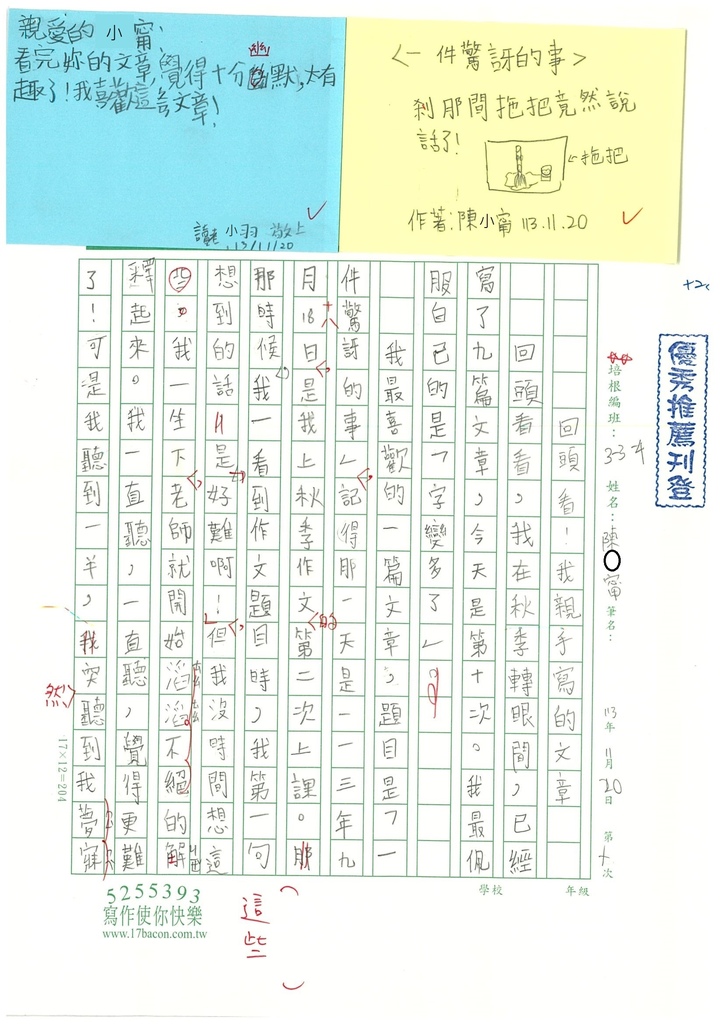 親愛的 小甯：
看完妳的文章,覺得十分幽默,太有
趣了!我喜歡這篇文章!
小羽 敬上
113/11/20
<一件驚訝的事>
剎那間拖把竟然說
話了!
←拖把
作著:陳小甯 113.11.20
優秀推薦刊登
培根編班：3-3
姓名：陳 甯 筆名：
113年11月20日 第十次
回頭看！我親手寫的文章
回頭看看，我在秋季轉眼間，已經
寫了九篇文章，今天是第十次。我最佩
服自己的是「字變多了」
我最喜歡的一篇文章，題目是「一
件驚訝的事」記得那一天是一一三年九
月18日是我上秋季作文第二次上課。那
那時候我一看到作文題目時，我第一句
想到的話是好難啊！但我沒時間想這
些。我一生下老師就開始滔滔不絕的解
釋起來。我一直聽，一直聽，覺得更難
了！可是我聽到一半，我突聽到我夢寐
十八
的
然
這些
17×12=204
學校 年級
5255393
寫作使你快樂
www.17bacon.com.tw